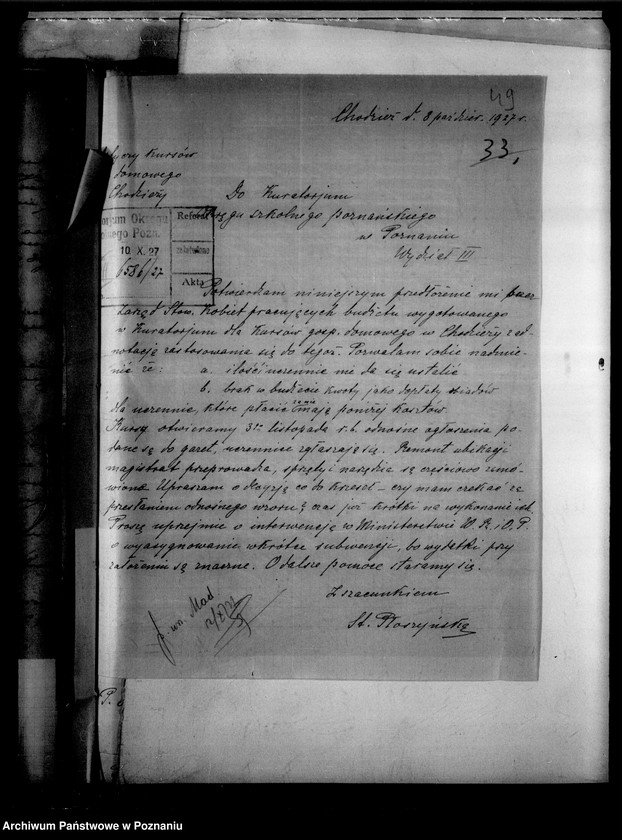 49
Chodzież d. 8 paździer. 1927 r.
33,
Kursów
domowego
Chodzieży
Do Kuratorjum
Okręgu szkolnego poznańskiego
w Poznaniu
Wydział III
orjum Okręgu
olnego Pozn.
10 X. 27
6586/27
Referat
załatwiono
Akta
Potwierdzam niniejszym przedłożenie mi przez
Zarząd Stow. Kobiet pracujących budżetu wygotowanego
w Kuratorjum dla Kursów gosp. domowego w Chodzieży z ad-
notacją zastosowania się do tegoż. Pozwalam sobie nadmie-
nić że: a. ilość uczennic nie da się ustalić
b. brak w budżecie kwoty jako dopłaty obiadów
dla uczennic, które płacić mają poniżej kosztów.
Kursy otwieramy 3go listopada r. b. odnośne ogłoszenia po-
dane są do gazet, uczennice zgłaszają się. Remont ubikacji
magistrat przeprowadza, sprzęty i narzędzia są częściowo zamó-
wione. Upraszam o decyzję co do krzeseł – czy mam czekać za
przesłaniem odnośnego wzoru? czas już krótki na wykonanie ich.
Proszę uprzejmie o interwencję w Ministerstwie W. R. i O. P.
o wyasygnowanie wkrótce subwencji, bo wydatki przy
założeniu są znaczne. O dalsze pomoce staramy się.
Z szacunkiem
St. Płoszyńska
Archiwum Państwowe w Poznaniu